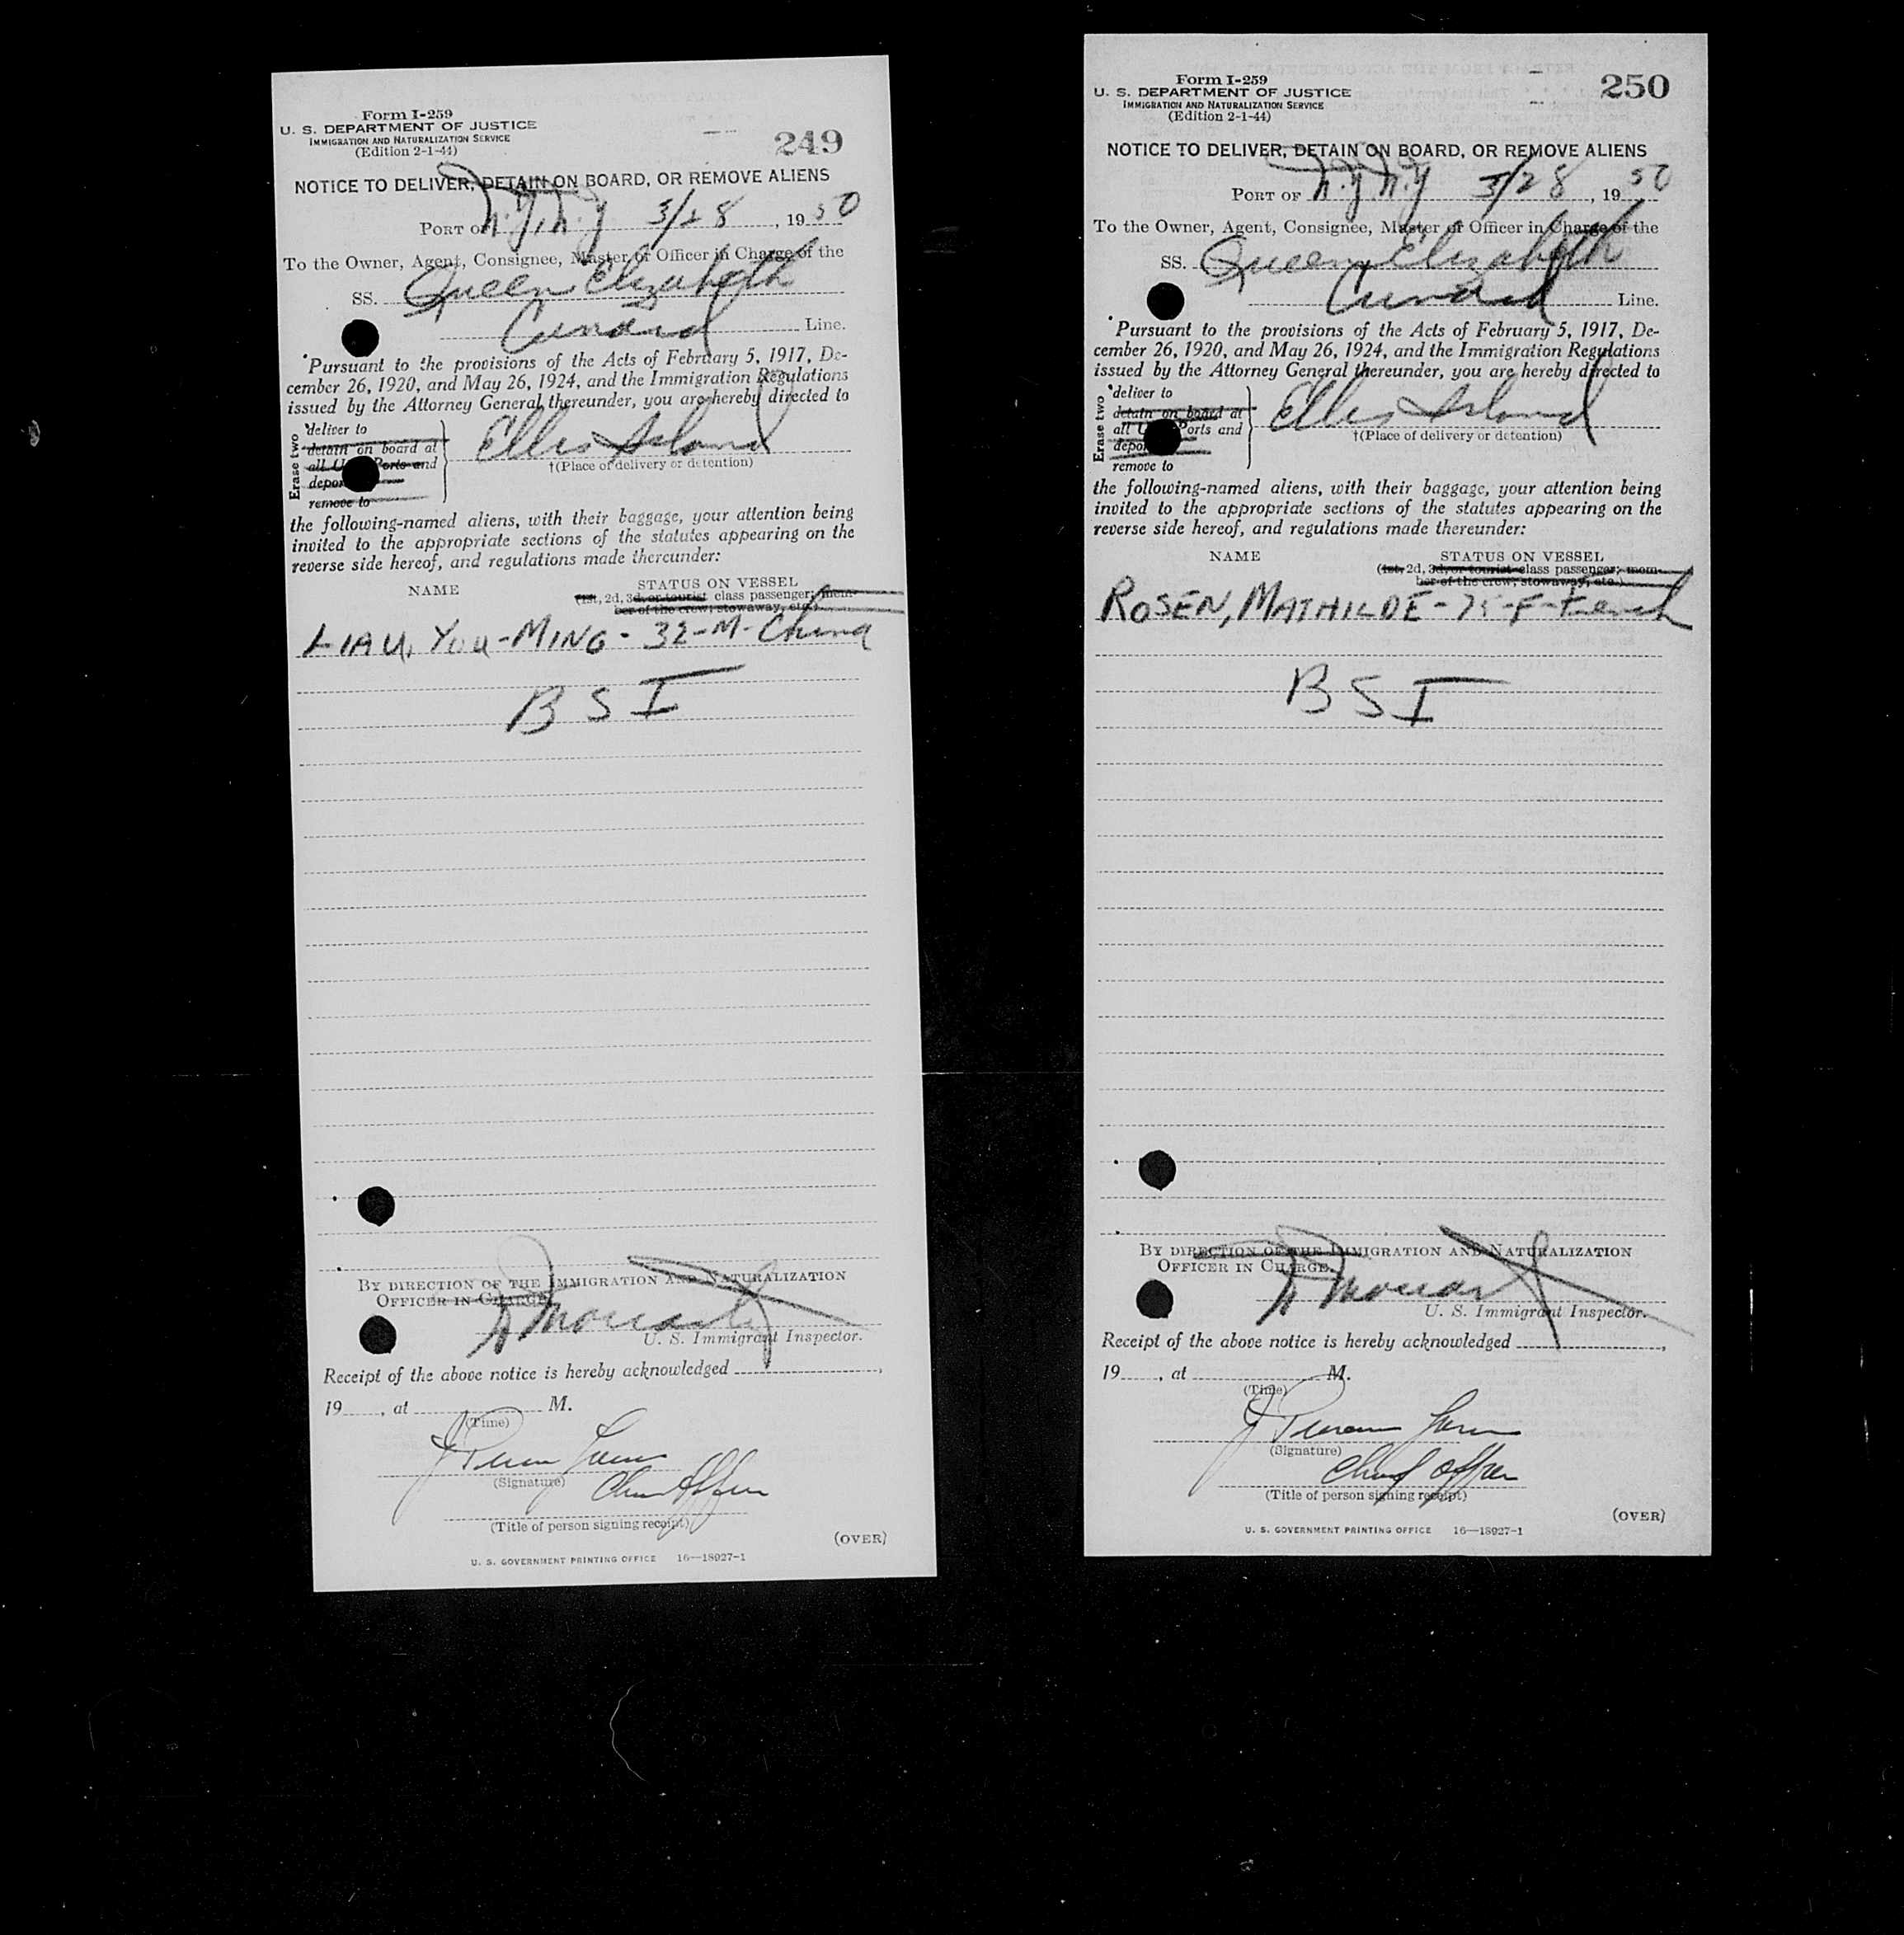 Form I-259
U. S. DEPARTMENT OF JUSTICE
IMMIGRATION AND NATURALIZATION SERVICE
(Edition 2-1-44)
249
NOTICE TO DELIVER, DETAIN ON BOARD, OR REMOVE ALIENS
PORT OF N.Y, N.Y 3/28, 1950
To the Owner, Agent, Consignee, Master or Officer in Charge of the
SS. Queen Elizabeth
Cunard Line.
Pursuant to the provisions of the Acts of February 5, 1917, De-
cember 26, 1920, and May 26, 1924, and the Immigration Regulations
issued by the Attorney General thereunder, you are hereby directed to
Erase two
deliver to
detain on board at
all U. Ports and
depor
remove to
Ellis Island
†(Place of delivery or detention)
the following-named aliens, with their baggage, your attention being
invited to the appropriate sections of the statutes appearing on the
reverse side hereof, and regulations made thereunder:
NAME
STATUS ON VESSEL
(1st, 2d, 3d, or tourist class passenger; mem-
ber of the crew; stowaway, etc.)
LIAU, YOU-MING - 32-M-China
BSI
BY DIRECTION OF THE IMMIGRATION AND NATURALIZATION
OFFICER IN CHARGE.
U. S. Immigrant Inspector.
Receipt of the above notice is hereby acknowledged
19 , at M.
(Time)
(Signature)
(Title of person signing receipt)
(OVER)
U. S. GOVERNMENT PRINTING OFFICE 16—18927-1
Form I-259
U. S. DEPARTMENT OF JUSTICE
IMMIGRATION AND NATURALIZATION SERVICE
(Edition 2-1-44)
250
NOTICE TO DELIVER, DETAIN ON BOARD, OR REMOVE ALIENS
PORT OF N.Y N.Y 3/28, 1950
To the Owner, Agent, Consignee, Master or Officer in Charge of the
SS. Queen Elizabeth
Cunard Line.
Pursuant to the provisions of the Acts of February 5, 1917, De-
cember 26, 1920, and May 26, 1924, and the Immigration Regulations
issued by the Attorney General thereunder, you are hereby directed to
Erase two
deliver to
detain on board at
all U Ports and
depor
remove to
Ellis Island
†(Place of delivery or detention)
the following-named aliens, with their baggage, your attention being
invited to the appropriate sections of the statutes appearing on the
reverse side hereof, and regulations made thereunder:
NAME
STATUS ON VESSEL
(1st, 2d, 3d, or tourist class passenger; mem-
ber of the crew; stowaway, etc.)
ROSEN, MATHILDE - 75-F-French
BSI
BY DIRECTION OF THE IMMIGRATION AND NATURALIZATION
OFFICER IN CHARGE.
U. S. Immigrant Inspector.
Receipt of the above notice is hereby acknowledged
19 , at M.
(Time)
(Signature)
(Title of person signing receipt)
(OVER)
U. S. GOVERNMENT PRINTING OFFICE 16—18927-1